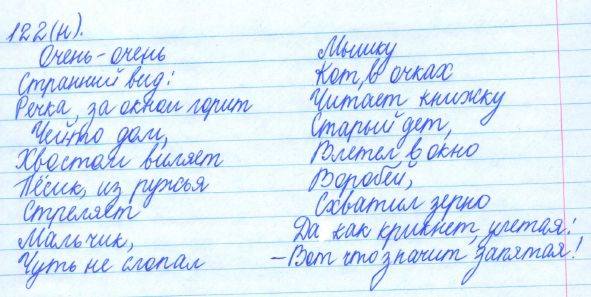 122(н).
Очень-очень
Странний вид:
Речка, за окном горит
Чей-то дом,
Хвостом виляет
Пёсик, из ружья
Стреляет
Мальчик,
Чуть не слопал
Мышку
Кот, в очках
Читает книжку
Старый дет,
Влетел в окно
Воробей,
Схватил зерно
Да как крикнет, улетая:
-Вот что значит запятая!